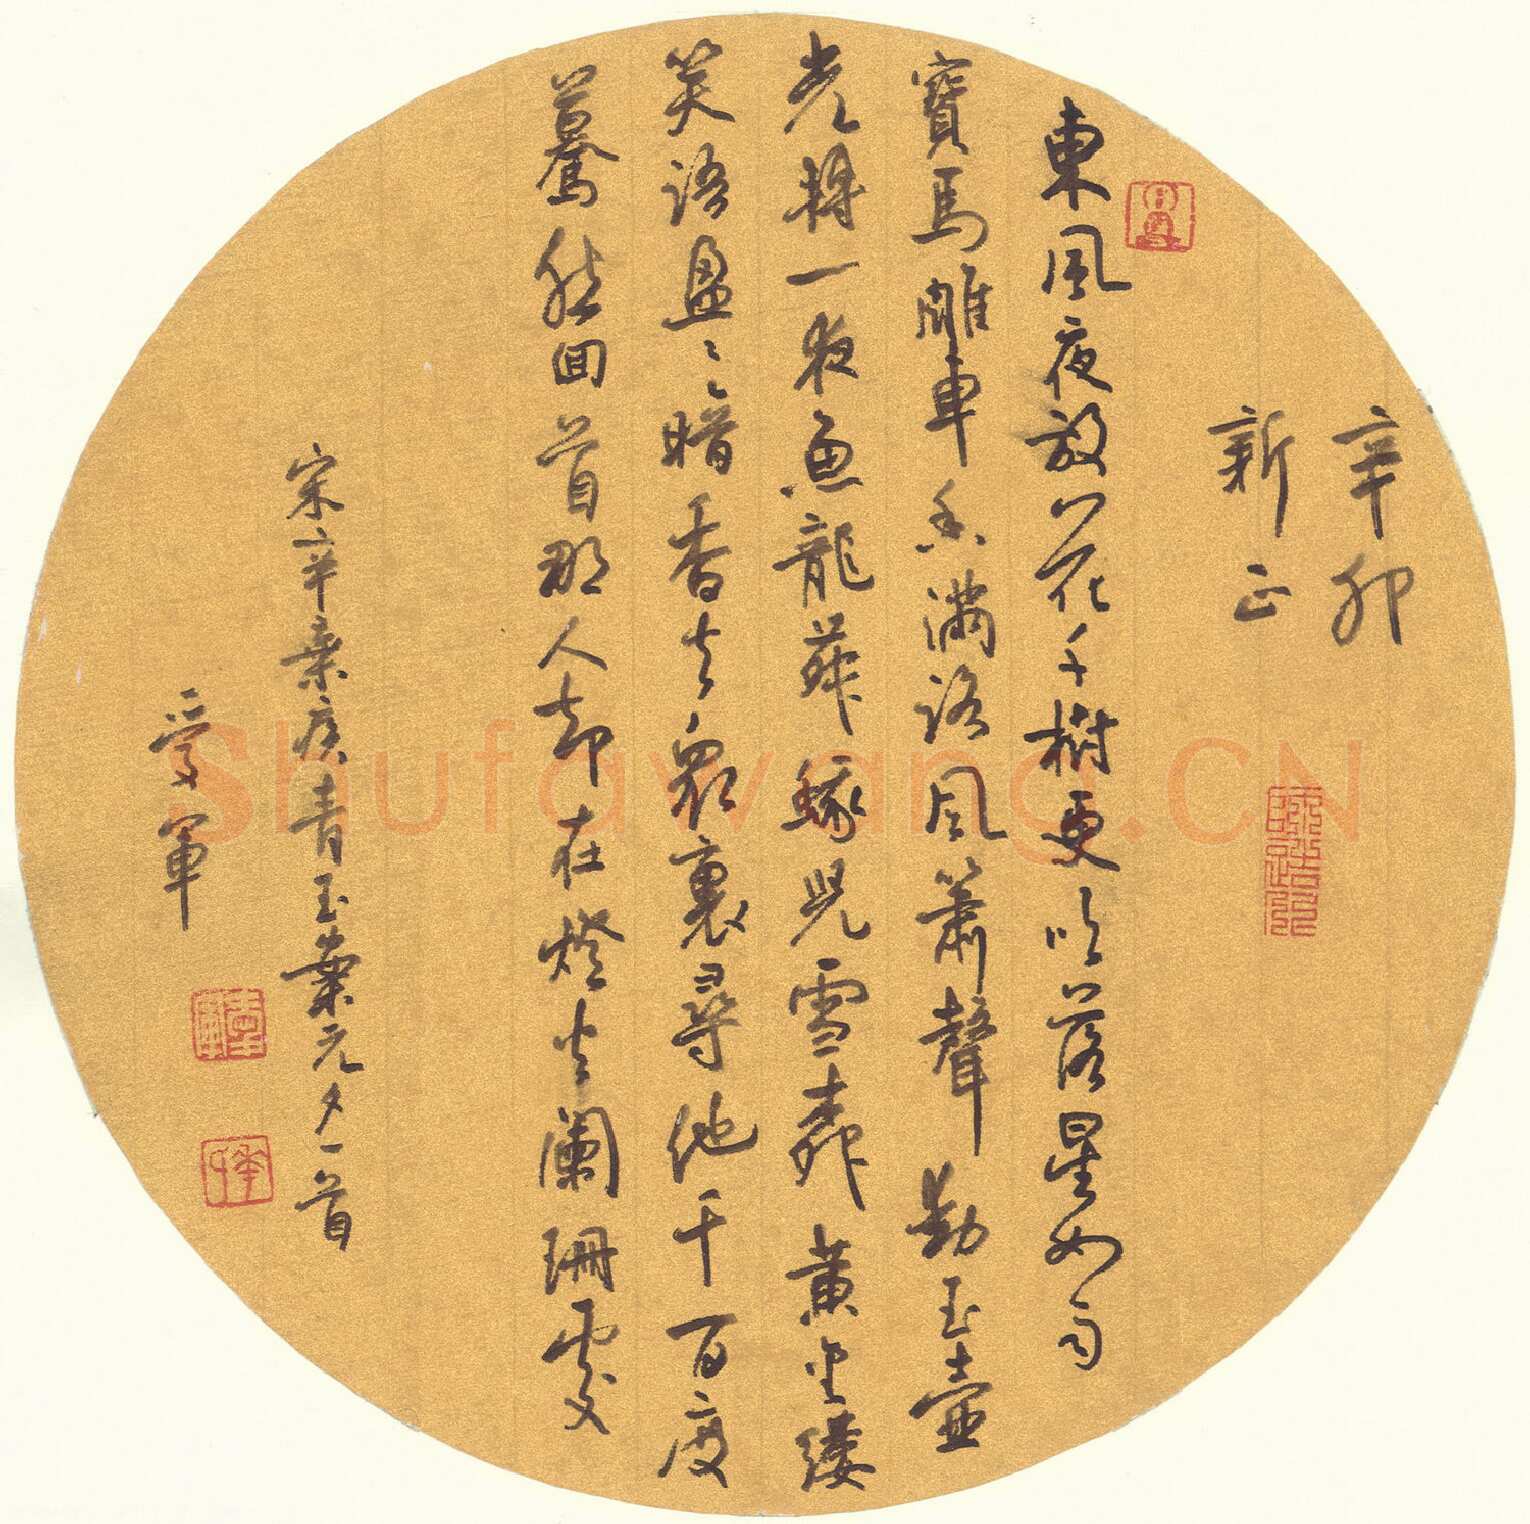 辛卯
新正
東風夜放花千樹更吹落星如雨
寶馬雕車香滿路風簫聲動玉壺
光轉一夜魚龍舞蛾兒雪柳黃金縷
笑語盈盈暗香去眾裏尋他千百度
驀然回首那人卻在燈火闌珊處
宋辛棄疾青玉案元夕一首
愛軍
Shufawang.CN